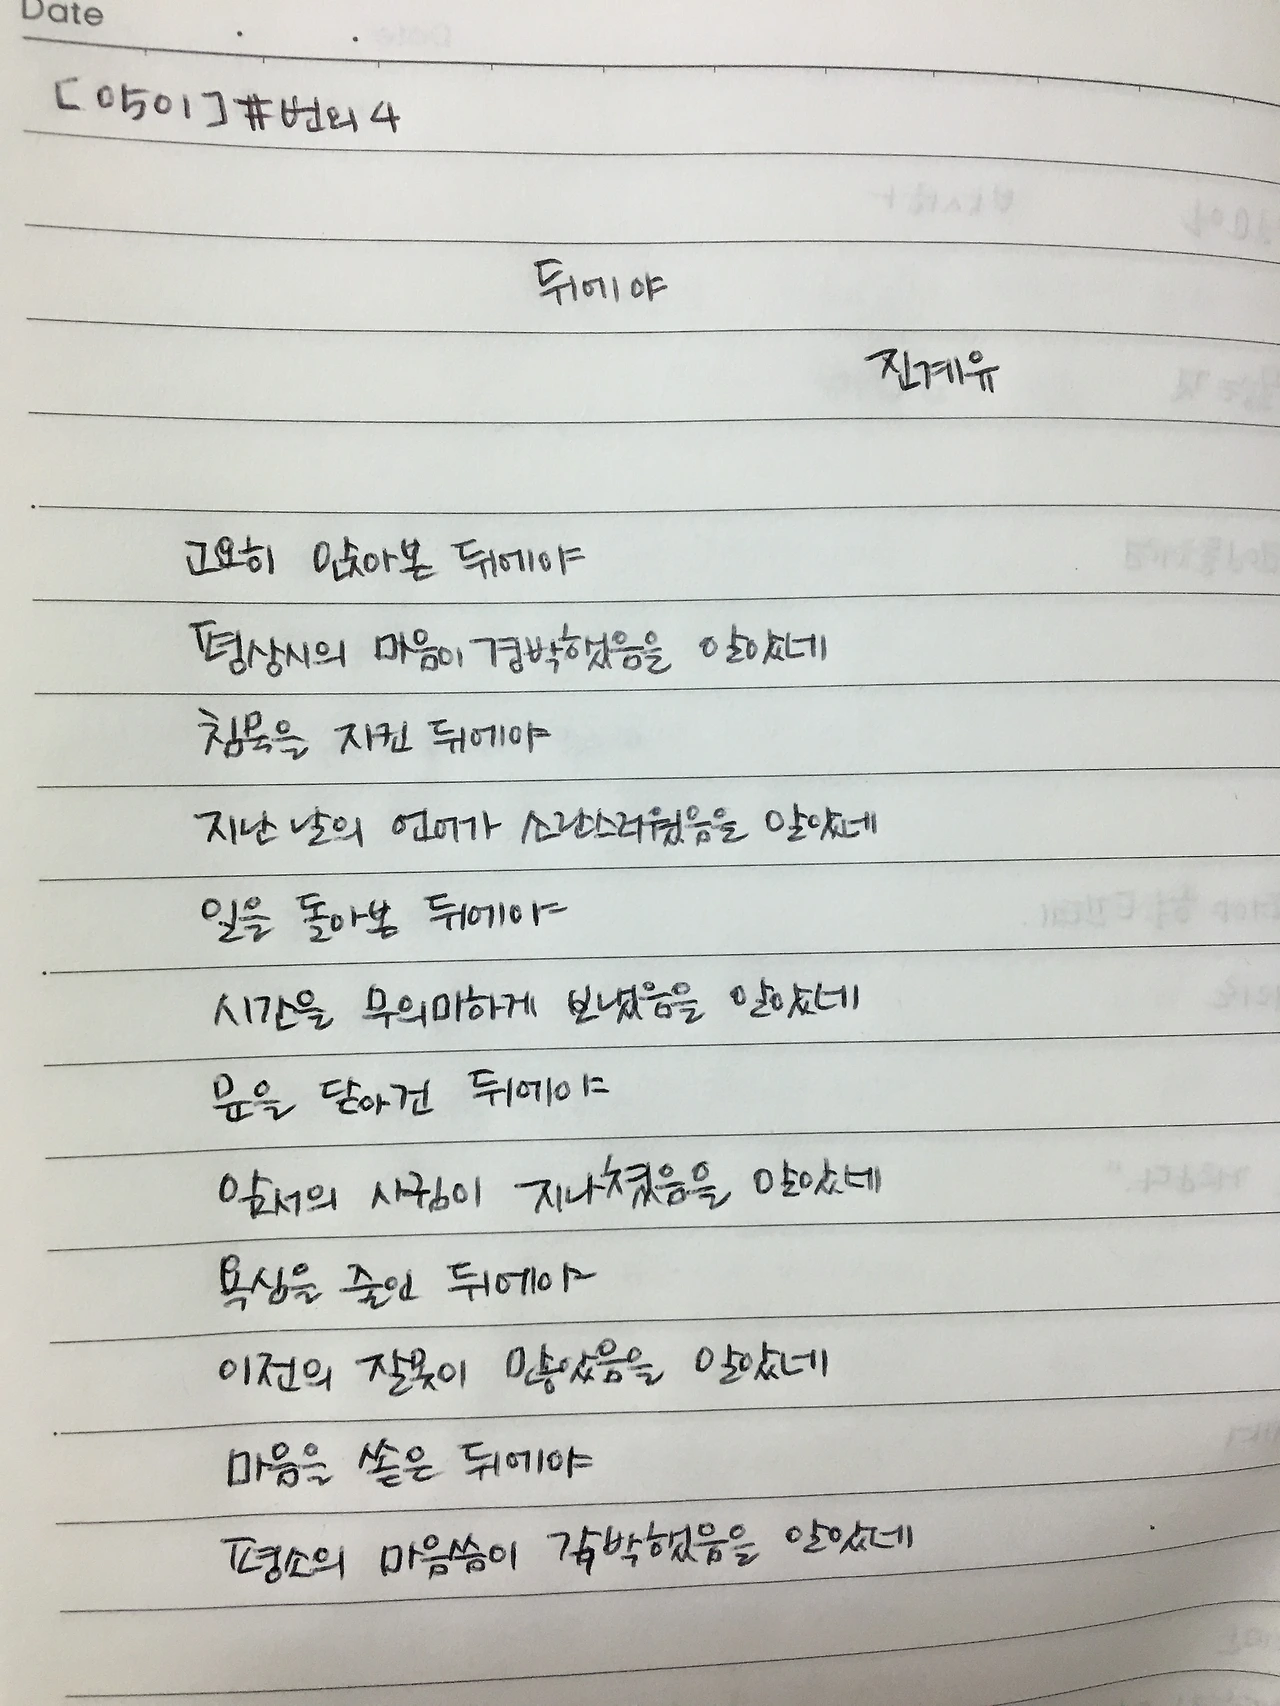 Date
[0501] #번외 4
뒤에야
진계유
고요히 앉아본 뒤에야
평상시의 마음이 경박했음을 알았네
침묵을 지킨 뒤에야
지난 날의 언어가 소란스러웠음을 알았네
일을 돌아봄 뒤에야
시간을 무의미하게 보냈음을 알았네
문을 닫아건 뒤에야
앞서의 사귐이 지나쳤음을 알았네
욕심을 줄인 뒤에야
이전의 잘못이 많았음을 알았네
마음을 쏟은 뒤에야
평소의 마음씀이 각박했음을 알았네